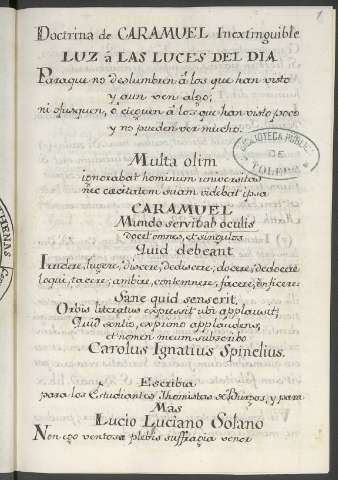 Doctrina de CARAMUEL Inextinguible
LUZ â LAS LUCES DEL DIA
Paraque no deslumbren â los que han visto
y aun ven algo;
ni ofusquen, ô cieguen â los que han visto poco
y no pueden ver mucho.
BIBLIOTECA PUBLICA
DE
TOLEDO
Multa olim
ignorabat hominum universitas
nec cacitatem suam videbat ipsa
CARAMUEL
Mundo servitab oculis
docet omnes, et singulos
Quid debeant
Irridere, lugere; discere, dediscere; docere, dedocere
loqui, tacere; ambire, contemnere; facere,
Sane quid senserit,
Orbis literatus expressit ubi applausit;
Quid sentio, exprimo applaudens,
et nomen meum subscribo
Carolus Ignatius Spinelius.
Escribia
para los Estudiantes Thomistas de Burgos, y para
Mas
Lucio Luciano Solano
Non ego ventosa plebis suffragia venor